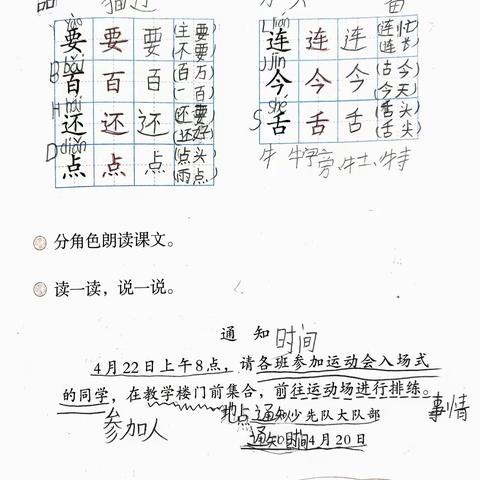 yào
要 要 要 (主要)
(不要)
B bǎi
百 百 百 (百万)
(一百)
H hái
还 还 还 (还要)
(还好)
D diǎn
点 点 点 (点头)
(雨点)
L lián
连 连 连 (连忙)
J jīn
今 今 今 (古今)
(今天)
S shé
舌 舌 舌 (舌头)
(舌尖)
牛 牛字旁 牡 特
分角色朗读课文。
读一读，说一说。
通 知 时间
4月22日上午8点，请各班参加运动会入场式
的同学，在教学楼门前集合，前往运动场进行排练。
参加人 地点 通知 少先队大队部 事情
通知时间 4月20日